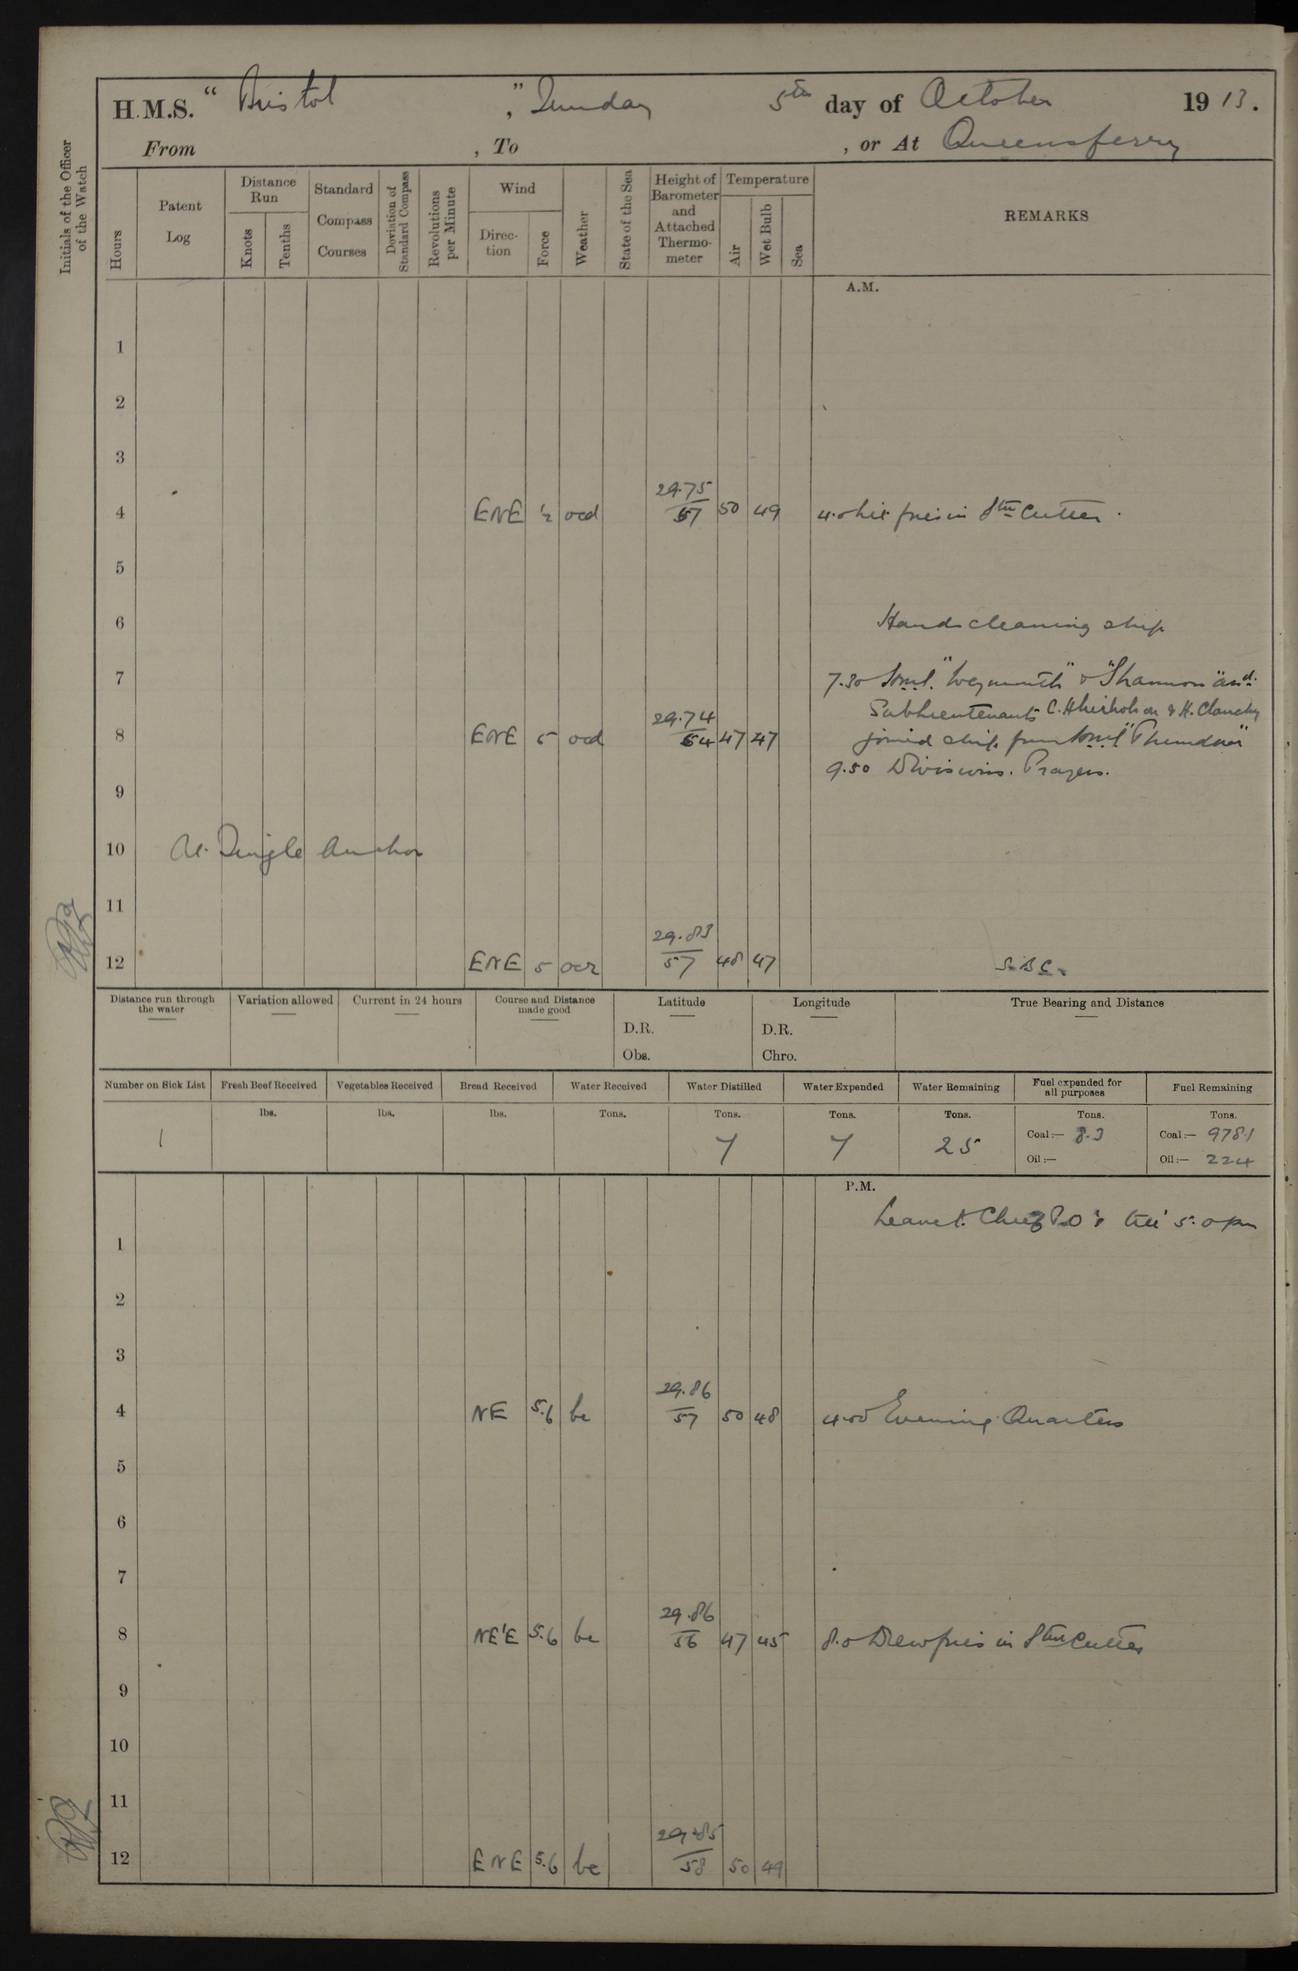 H.M.S. “ Bristol ”, Sunday 5th day of October 1913.
From , To , or At Queensferry
Initials of the Officer of the Watch
Hours
Patent Log
Distance Run
Knots
Tenths
Standard Compass Courses
Deviation of Standard Compass
Revolutions per Minute
Wind
Direction
Force
Weather
State of the Sea
Height of Barometer and Attached Thermometer
Temperature
Air
Wet Bulb
Sea
REMARKS
A.M.
1
2
3
4 ENE ½ ocd 29.75/57 50 49 4.0 Lit fires in Stm Cutter.
5
6 Hands cleaning ship
7 7.30 "Weymouth" & "Shannon" and
Sublieutenants & H.
8 ENE 5 ocd 29.74/54 47 47 joined ship from
9.50 Divisions. Prayers.
9
10 At Single Anchor
11
12 ENE 5 ocr 29.83/57 48 47 S.B.C.
Distance run through the water
Variation allowed
Current in 24 hours
Course and Distance made good
Latitude
D.R.
Obs.
Longitude
D.R.
Chro.
True Bearing and Distance
Number on Sick List
Fresh Beef Received
Vegetables Received
Bread Received
Water Received
Water Distilled
Water Expended
Water Remaining
Fuel expended for all purposes
Fuel Remaining
lbs. lbs. lbs. Tons. Tons. Tons. Tons. Tons. Tons.
1 7 7 25 Coal:— 8.3 Coal:— 978.1
Oil:— Oil:— 224
P.M.
Leave to Chief P.O's till 5.0 pm
1
2
3
4 NE 5.6 bc 29.86/57 50 48 4.00 Evening Quarters
5
6
7
8 NE'E 5.6 bc 29.86/56 47 45 8.0 Drew fires in Stm Cutter
9
10
11
12 ENE 5.6 bc 29.85/58 50 49